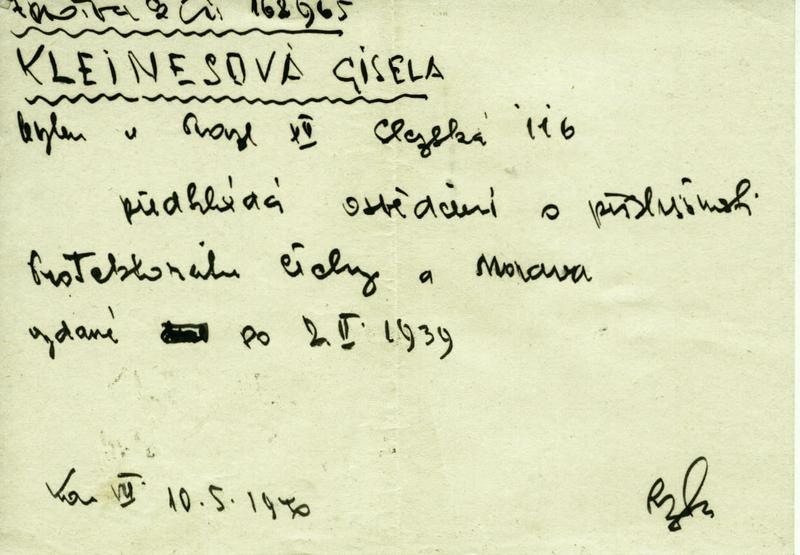 162965
KLEINESOVÁ GISELA
bytem v Praze XII Slezská 116
předkládá osvědčení o příslušnosti
Protektorátu Čechy a Morava
vydané po 2.II. 1939
VII 10.5.1940